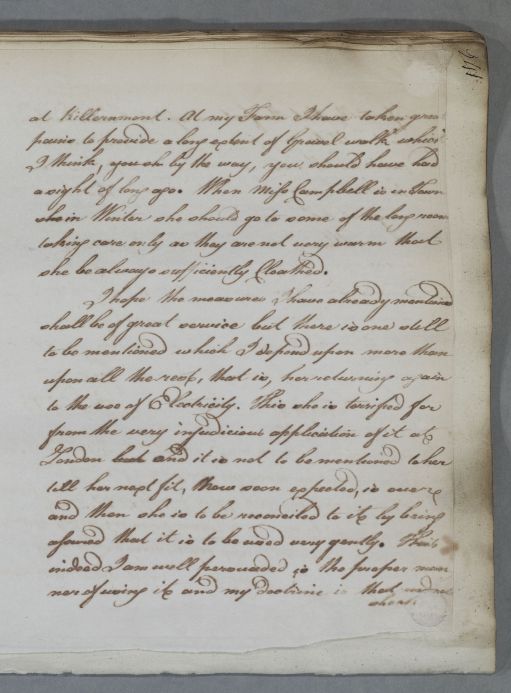 at Killernmont. At my Farm I have taken great
pains to provide a long extent of Gravel walk which
I think, you oh by the way, you should have had
a sight of long ago. When Miss Campbell is in Town
who in Winter she should go to some of the long room
taking care only as they are not very warm that
she be always sufficiently Cloathed.
I hope the measures I have already mentioned
shall be of great service but there is one still
to be mentioned which I depend upon more than
upon all the rest, that is, her returning again
to the use of Electricity. This she is terrified for
from the very injudicious application of it at
London but and it is not to be mentioned to her
till her next fit, now soon expected, is over
and then she is to be reconciled to it by being
assured that it is to be used very gently. This
indeed I am well persuaded is the proper man
ner of using it and my doctrine is that